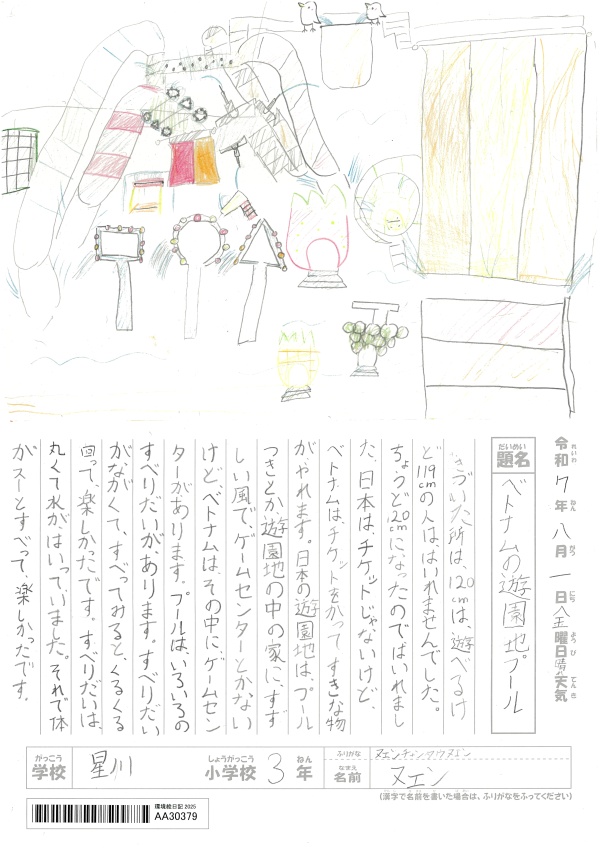 令和7年八月一日金曜日晴天気
れいわ ねん がつ にち ようび てんき
だいめい
題名 ベトナムの遊園地プール
きづいた所は、120cmは、遊べるけ
ど119cmの人は、はいれませんでした。
ちょうど120cmになったのではいれまし
た。日本は、チケットじゃないけど、
ベトナムは、チケットをかって すきな物
がやれます。日本の遊園地は、プール
つきとか遊園地の中の家にすず
しい風で、ゲームセンターとかない
けど、ベトナムは、その中に、ゲームセン
ターがあります。プールは、いろいろの
すべりだいが、あります。すべりだい
がながくて、すべってみると、くるくる
回って、楽しかったです。すべりだいは、
丸くて水が、はいっていました。それで体
がスーとすべって 楽しかったです。
がっこう
学校 星川 小学校 3年
しょうがっこう ねん
ふりがな
なまえ
名前 ヌエン
(漢字で名前を書いた場合は、ふりがなをふってください)
環境絵日記 2025
AA30379